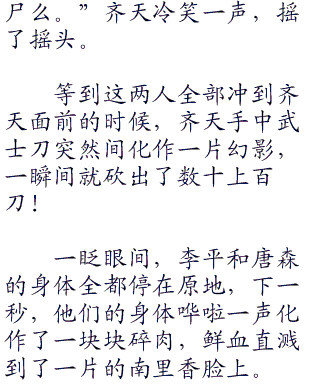 尸么。”齐天冷笑一声，摇
了摇头。
等到这两人全部冲到齐
天面前的时候，齐天手中武
士刀突然间化作一片幻影，
一瞬间就砍出了数十上百
刀！
一眨眼间，李平和唐森
的身体全都停在原地，下一
秒，他们的身体哗啦一声化
作了一块块碎肉，鲜血直溅
到了一片的南里香脸上。